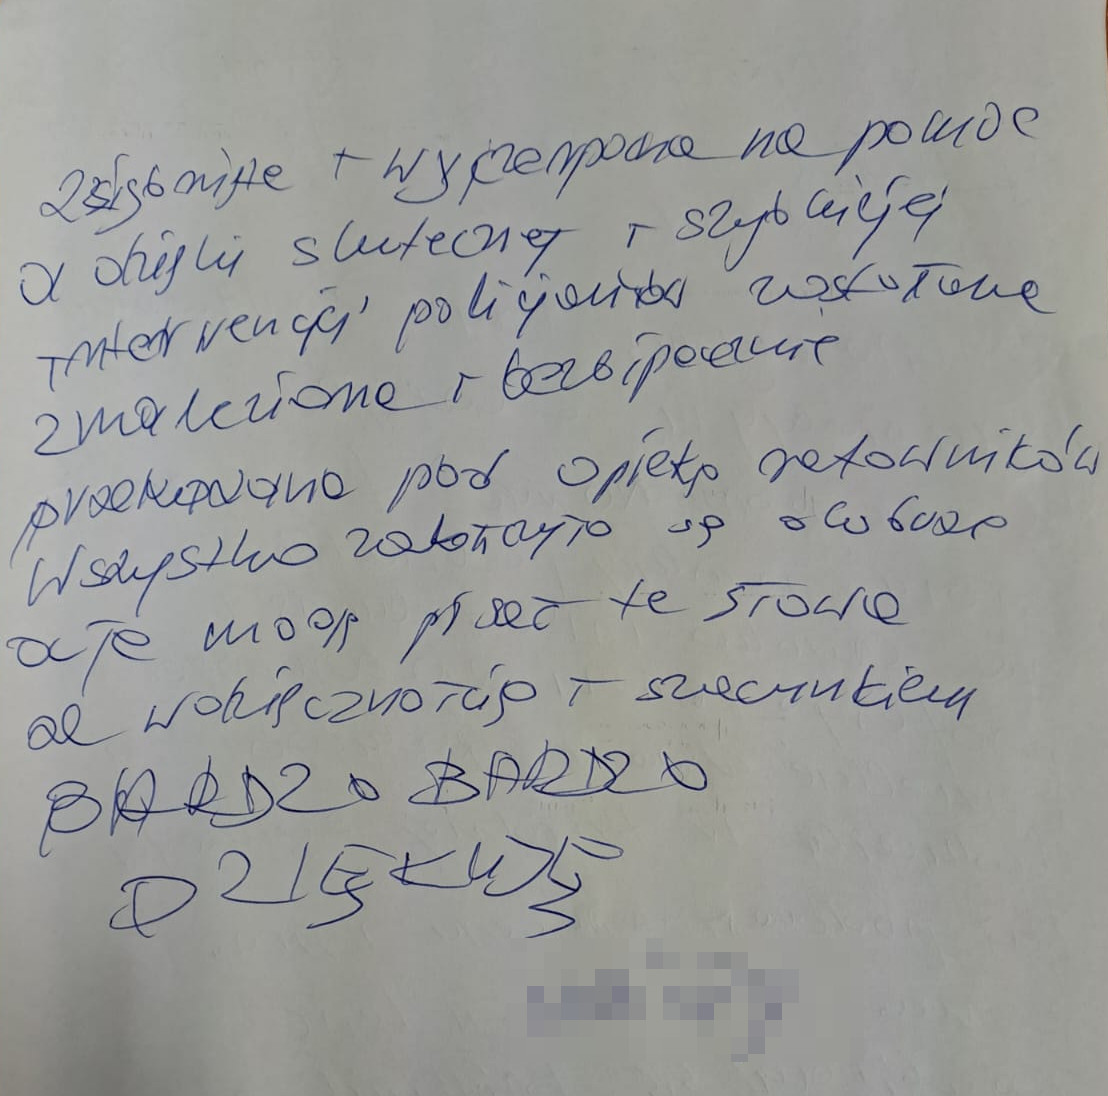 zziębnięta i wyczerpana na pomoc
a dzięki skutecznej i szybkiej
interwencji policjantów zostałam
znaleziona i bezpiecznie
przekazana pod opiekę ratowników
Wszystko zakończyło się dobrze
a ja mogę pisać te słowa
z wdzięcznością i szacunkiem
BARDZO BARDZO
DZIĘKUJĘ